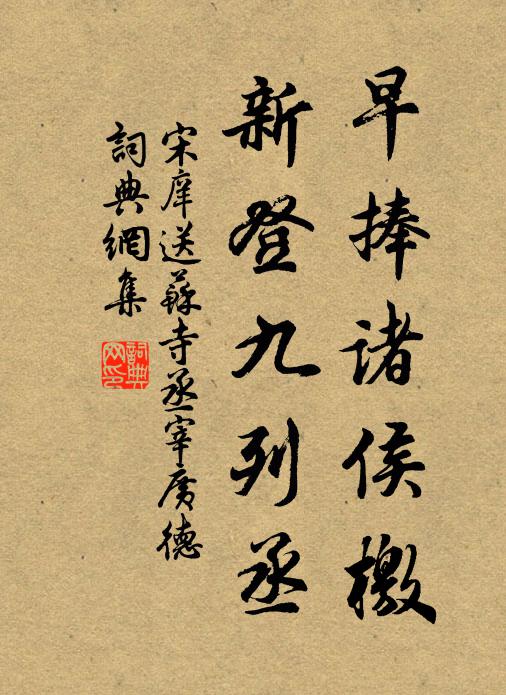 早捧诸侯檄
新登九列丞
宋庠送蘇寺丞宰廣德
詞典網集
詞典网印